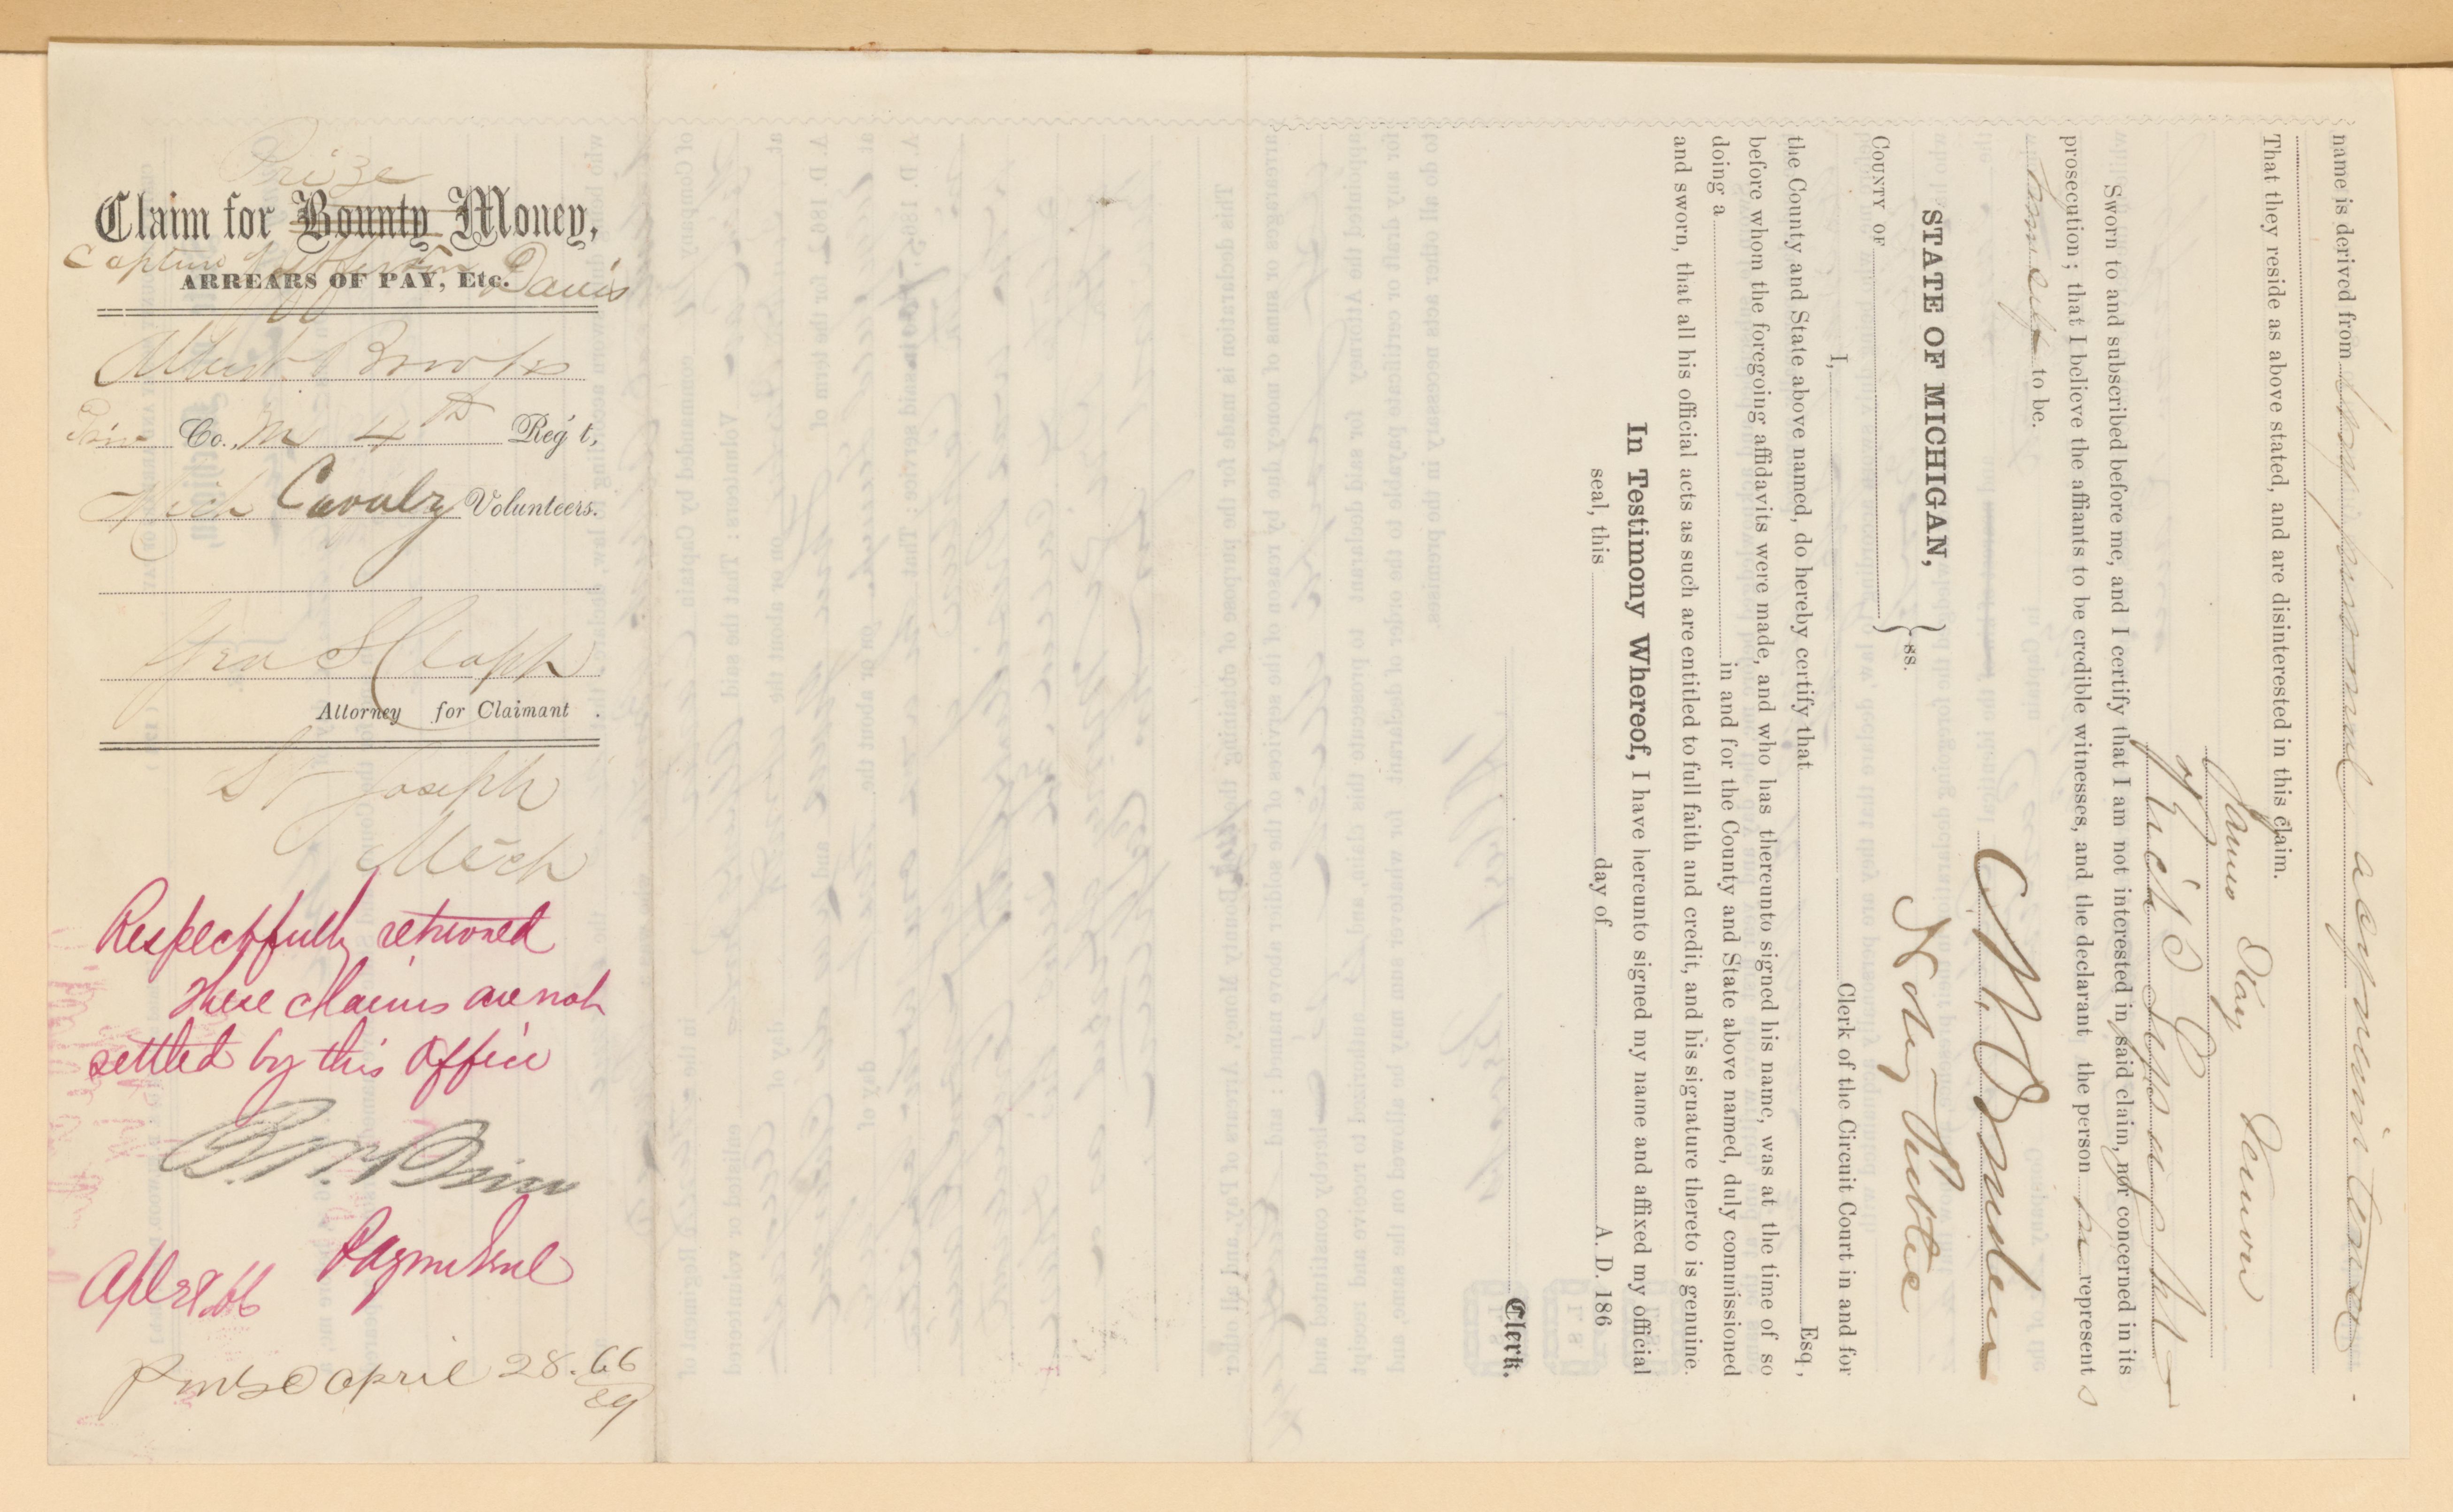 Prize
Claim for Bounty Money,
Capture of Jefferson Davis
ARREARS OF PAY, Etc.
Albert Brooks
Co. M 4th Reg't,
Mich Cavalry Volunteers.
Geo S Clapp
Attorney for Claimant.
St Joseph
Mich
Respectfully returned
these claims are not
settled by this Office
Paymr Genl
Apl 28, 66
April 28. 66
name is derived from personal acquaintance
That they reside as above stated, and are disinterested in this claim.
James Day
Sworn to and subscribed before me, and I certify that I am not interested in said claim, nor concerned in its
prosecution; that I believe the affiants to be credible witnesses, and the declarant the person he represents
himself to be.
Notary Public
STATE OF MICHIGAN,
COUNTY OF } ss.
I, Clerk of the Circuit Court in and for
the County and State above named, do hereby certify that Esq.,
before whom the foregoing affidavits were made, and who has thereunto signed his name, was at the time of so
doing a in and for the County and State above named, duly commissioned
and sworn, that all his official acts as such are entitled to full faith and credit, and his signature thereto is genuine.
In Testimony Whereof, I have hereunto signed my name and affixed my official
seal, this day of A. D. 186
Clerk.